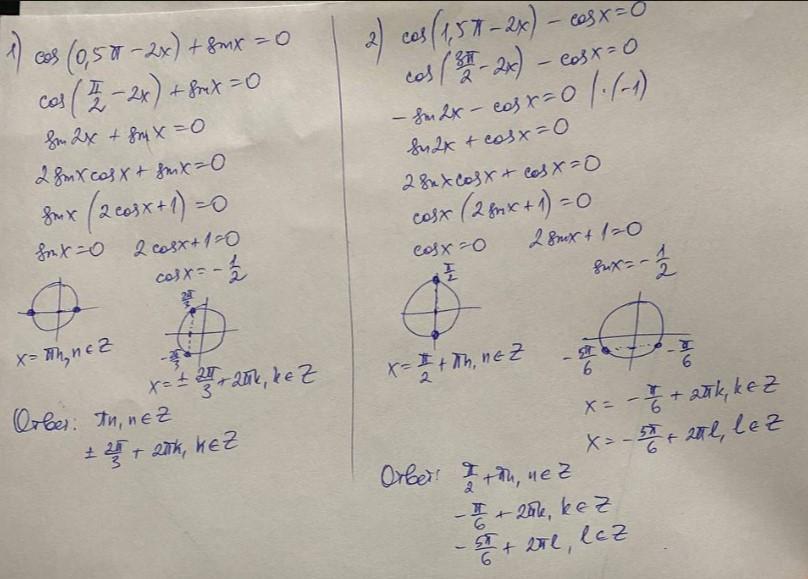 1) cos(0,5π - 2x) + sinx = 0
cos(π/2 - 2x) + sinx = 0
sin2x + sinx = 0
2sinxcosx + sinx = 0
sinx(2cosx + 1) = 0
sinx = 0 2cosx + 1 = 0
cosx = -1/2
2π/3
-2π/3
x = πn, n ∈ Z
x = ± 2π/3 + 2πk, k ∈ Z
Ответ: πn, n ∈ Z
± 2π/3 + 2πk, k ∈ Z
2) cos(1,5π - 2x) - cosx = 0
cos(3π/2 - 2x) - cosx = 0
-sin2x - cosx = 0 | ·(-1)
sin2x + cosx = 0
2sinxcosx + cosx = 0
cosx(2sinx + 1) = 0
cosx = 0 2sinx + 1 = 0
sinx = -1/2
π/2
-5π/6 -π/6
x = π/2 + πn, n ∈ Z
x = -π/6 + 2πk, k ∈ Z
x = -5π/6 + 2πl, l ∈ Z
Ответ: π/2 + πn, n ∈ Z
-π/6 + 2πk, k ∈ Z
-5π/6 + 2πl, l ∈ Z